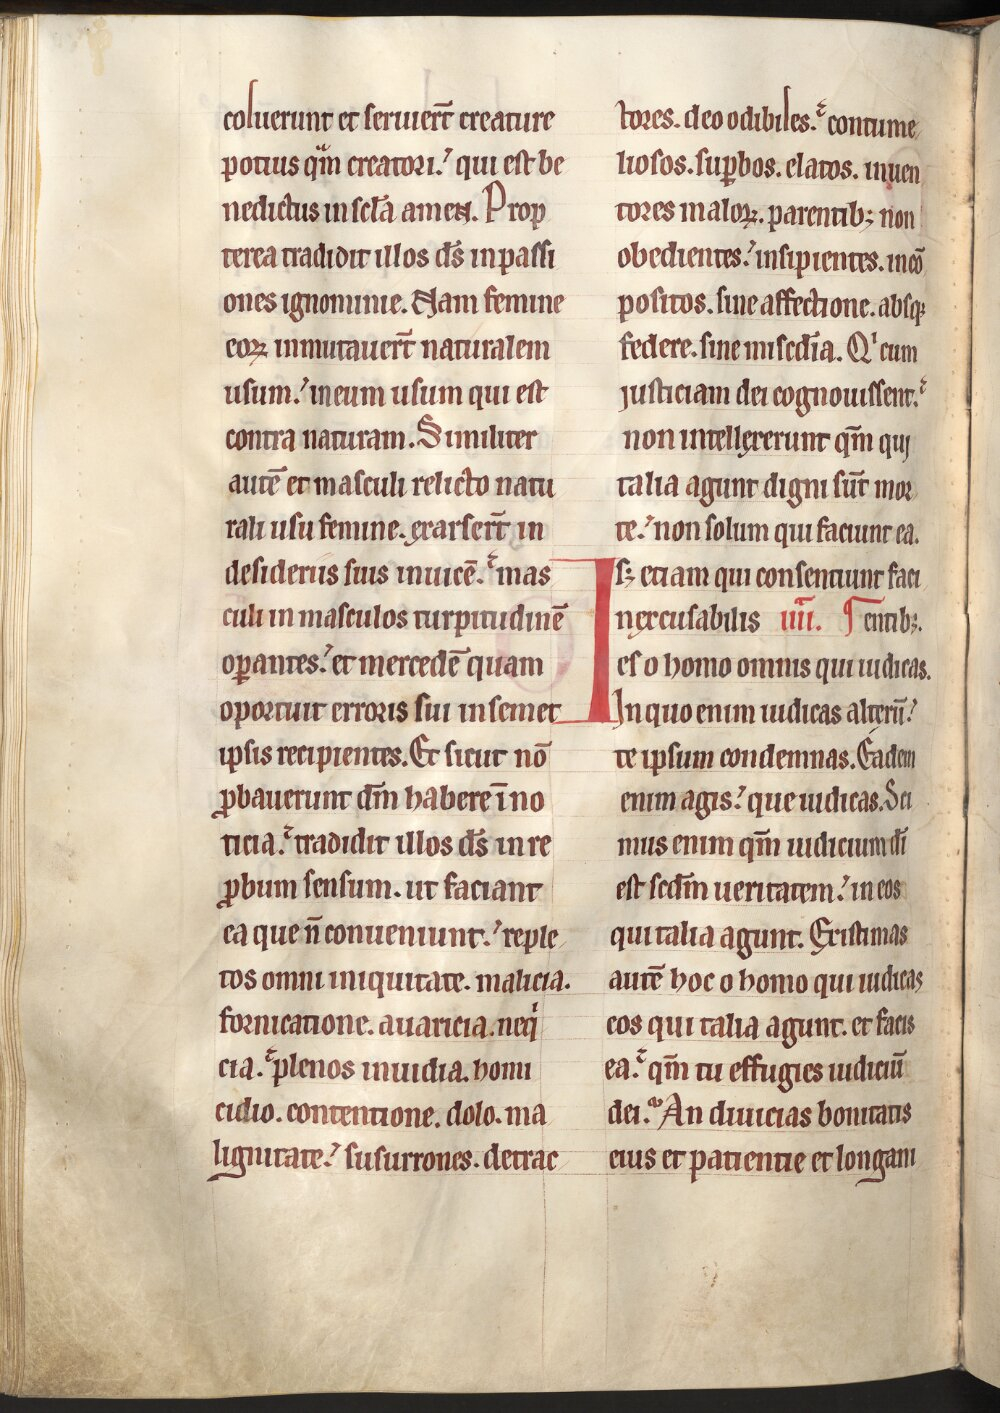 coluerunt et seruier̄t creature
potius qᵃm̄ creatori.ˀ qui est be
nedictus in scl̄a amen. Prop
terea tradidit illos ds̄ in passi
ones ignominie. Nam femine
eoꝝ inmutauer̄t naturalem
usum.ˀ in eum usum qui est
contra naturam. Similiter
autē et masculi relicto natu
rali usu femine. exarser̄t in
desideriis suis inuicē. mas
culi in masculos turpitudinē
oꝑantes.ˀ et mercedē quam
oportuit erroris sui in semet
ipsis recipientes. Et sicut nō
ꝓbauerunt dm̄ habere ī no
ticia. tradidit illos ds̄ in re
ꝓbum sensum. ut faciant
ea que n̄ conueniunt.ˀ reple
tos omni iniquitate. malicia.
fornicatione. auaricia. neqⁱ
cia. plenos inuidia. homi
cidio. contentione. dolo. ma
lignitate.ˀ susurrones. detrac
tores. deo odibiles. contume
liosos. suꝑbos. elatos. inuen
tores maloꝝ. parentibꝫ non
obedientes.ˀ insipientes. incō
positos. sine affectione. absqꝫ
federe. sine misedīa. Qⁱ cum
iusticiam dei cognouissent.
non intellexerunt qm̄ qui
talia agunt digni sūt mor
te.ˀ non solum qui faciunt ea.
sꝫ etiam qui consentiunt faci
Inexcusabilis iiii. ¶ entibꝫ.
es o homo omnis qui iudicas.
In quo enim iudicas alterū.ˀ
te ipsum condemnas. Eadem
enim agis.ˀ que iudicas. Sci
mus enim qm̄ iudicium dī
est scdm̄ ueritatem.ˀ in eos
qui talia agunt. Existimas
autē hoc o homo qui iudicas
eos qui talia agunt. et facis
ea. qm̄ tu effugies iudiciū
dei. An diuicias bonitatis
eius et patientie et longani